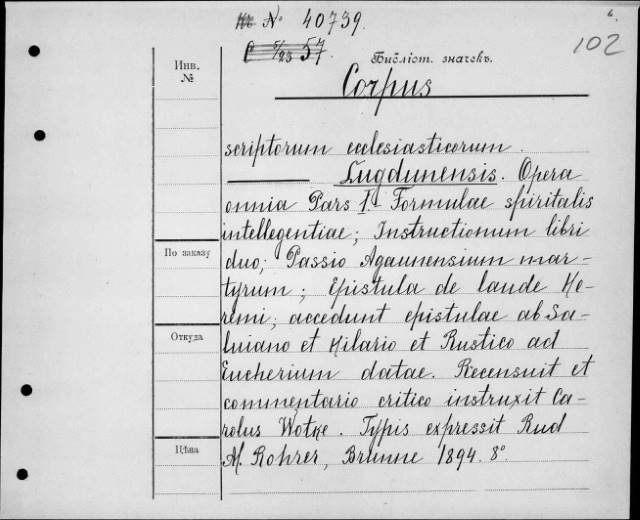 № 40739.
C 5/23 57.
102
Библіот. значекъ.
Инв.
№
Corpus
scriptorum ecclesiasticorum.
Lugdunensis. Opera
omnia Pars I. Formulae spiritalis
intellegentiae; Instructionum libri
duo; Passio Agaunensium mar-
По заказу
tyrum; Epistula de laude He-
remi; accedunt epistulae ab Sa-
Откуда
luiano et Hilario et Rustico ad
Eucherium datae. Recensuit et
commentario critico instruxit Ca-
rolus Wotke. Typis expressit Rud
Цѣна
M. Rohrer, Brunne 1894. 8°